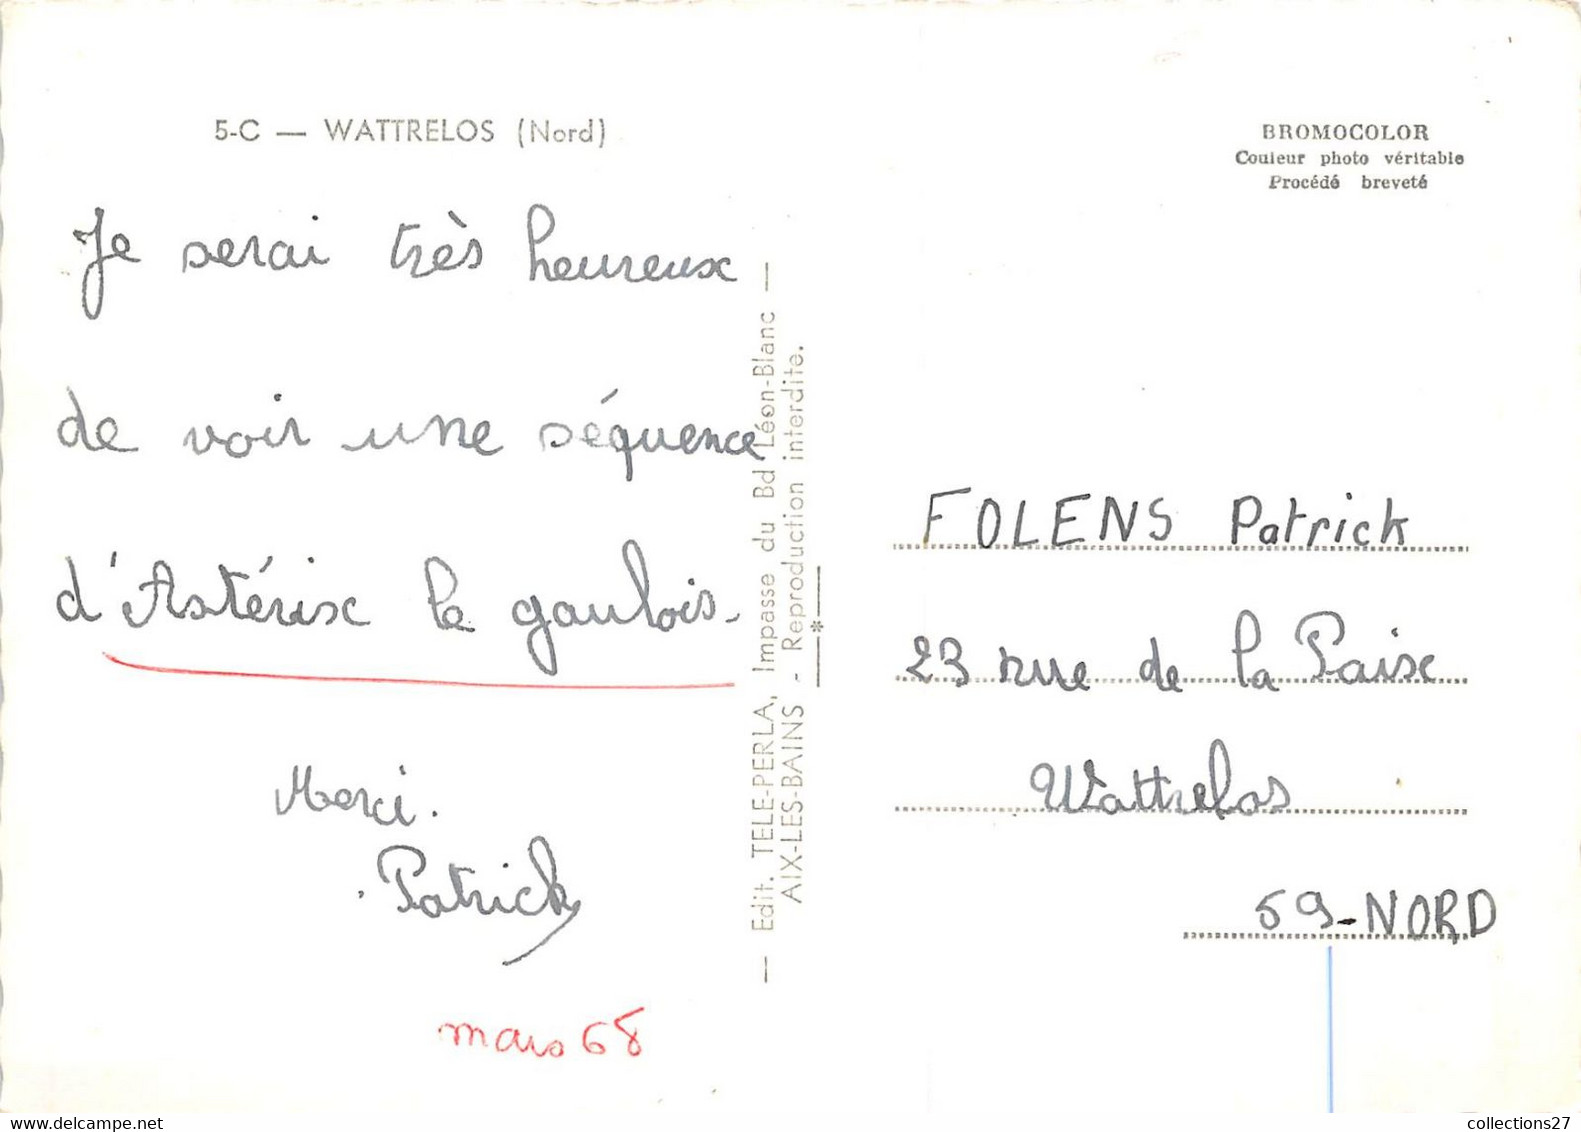 5-C — WATTRELOS (Nord)
BROMOCOLOR
Couleur photo véritable
Procédé breveté
Je serai très heureux
de voir une séquence
d'Astérix le gaulois.
Merci.
Patrick
mars 68
— Edit. TELE-PERLA, Impasse du Bd Léon-Blanc —
AIX-LES-BAINS - Reproduction interdite.
*
FOLENS Patrick
23 rue de la Paix
Wattrelos
59-NORD
collections27